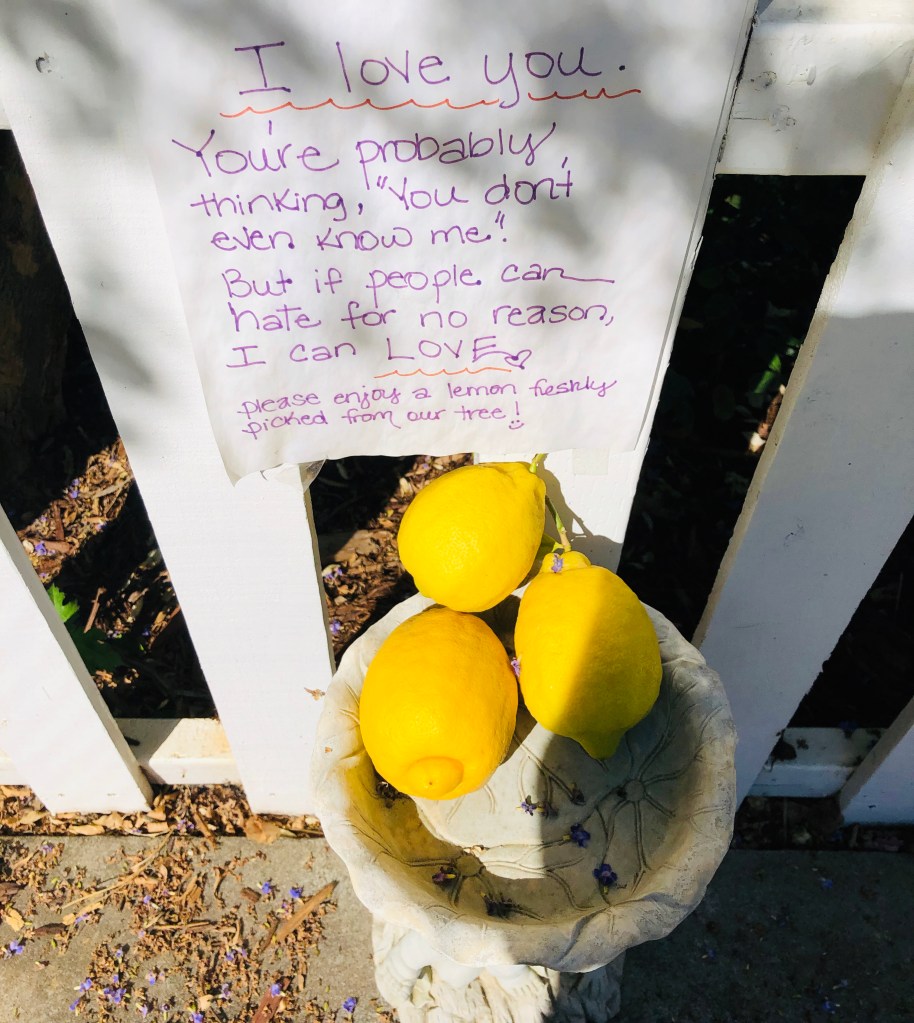 I love you.
You're probably
thinking, "You don't
even know me".
But if people can
hate for no reason,
I can LOVE
please enjoy a lemon freshly
picked from our tree!